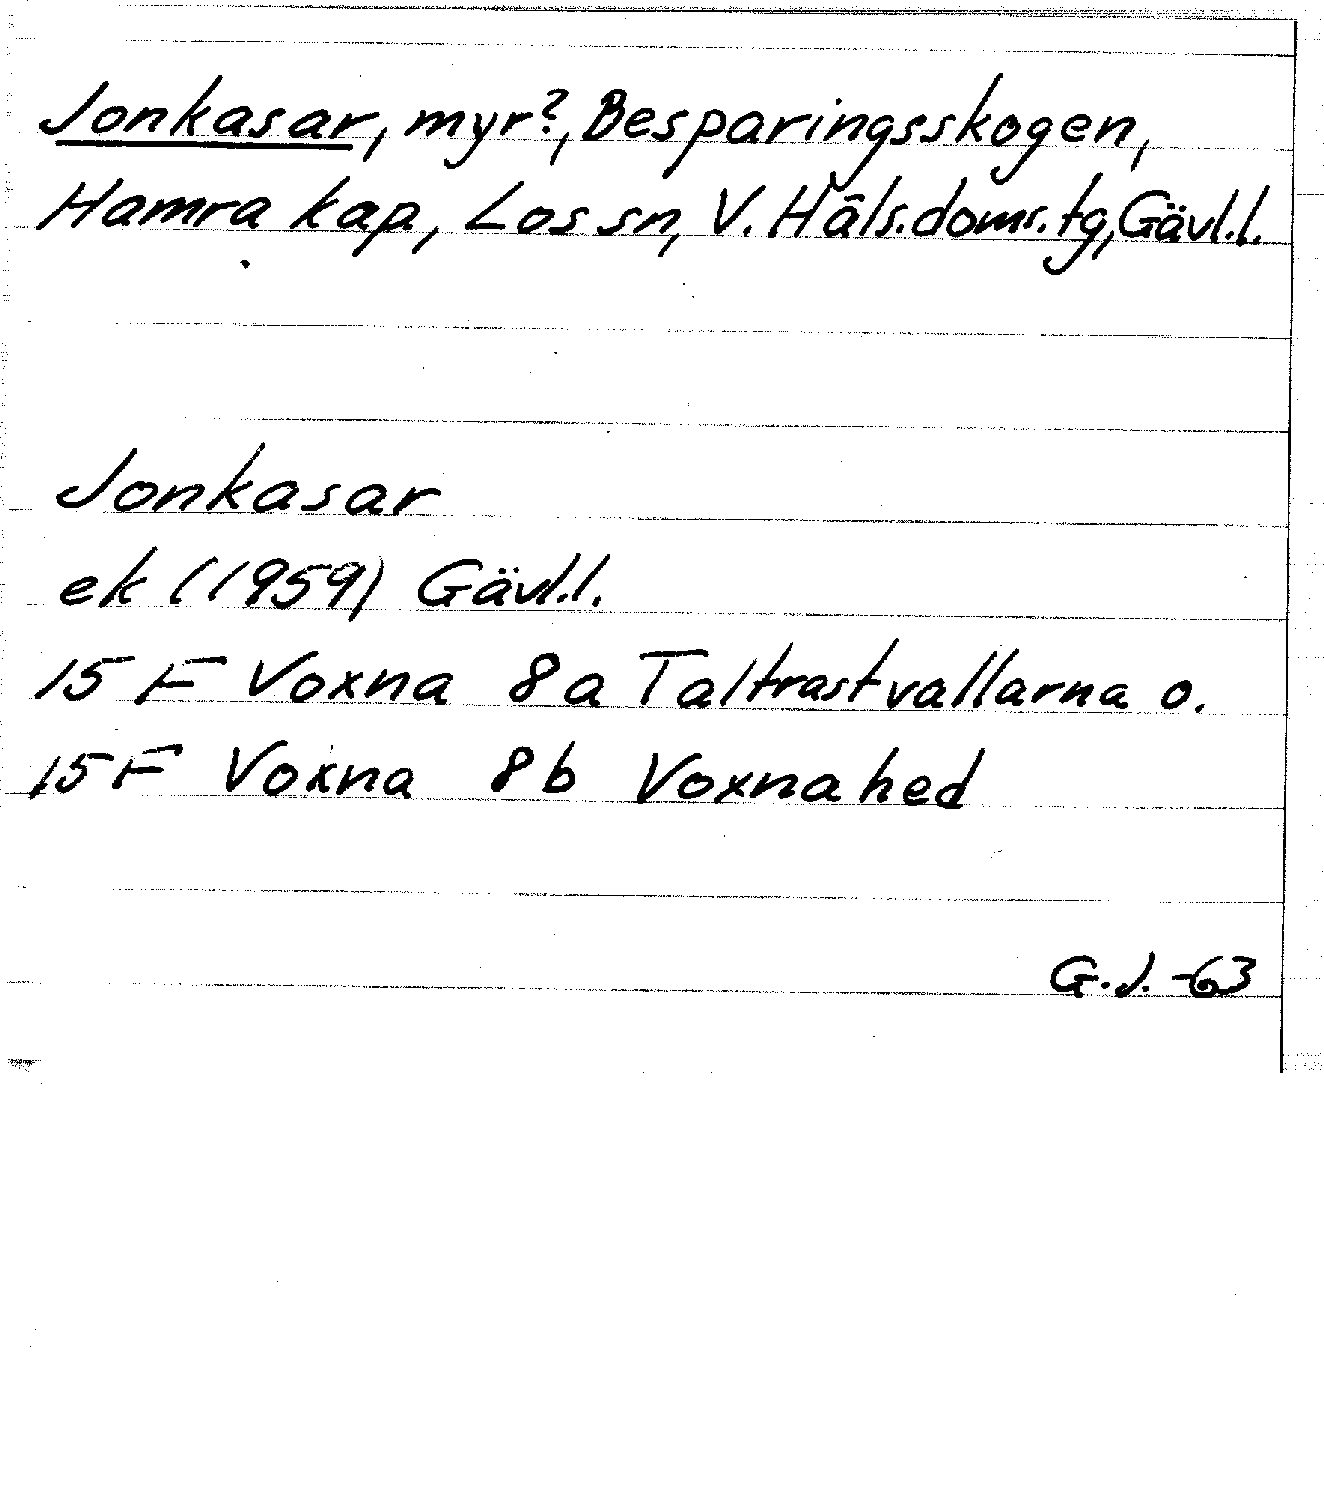 Jonkasar, myr?, Besparingsskogen,
Hamra kap, Los sn, V. Häls. doms. tg, Gävl. l.
Jonkasar
ek (1959) Gävl. l.
15 F Voxna 8a Taltrastvallarna o.
15 F Voxna 8b Voxnahed
G.J. -63